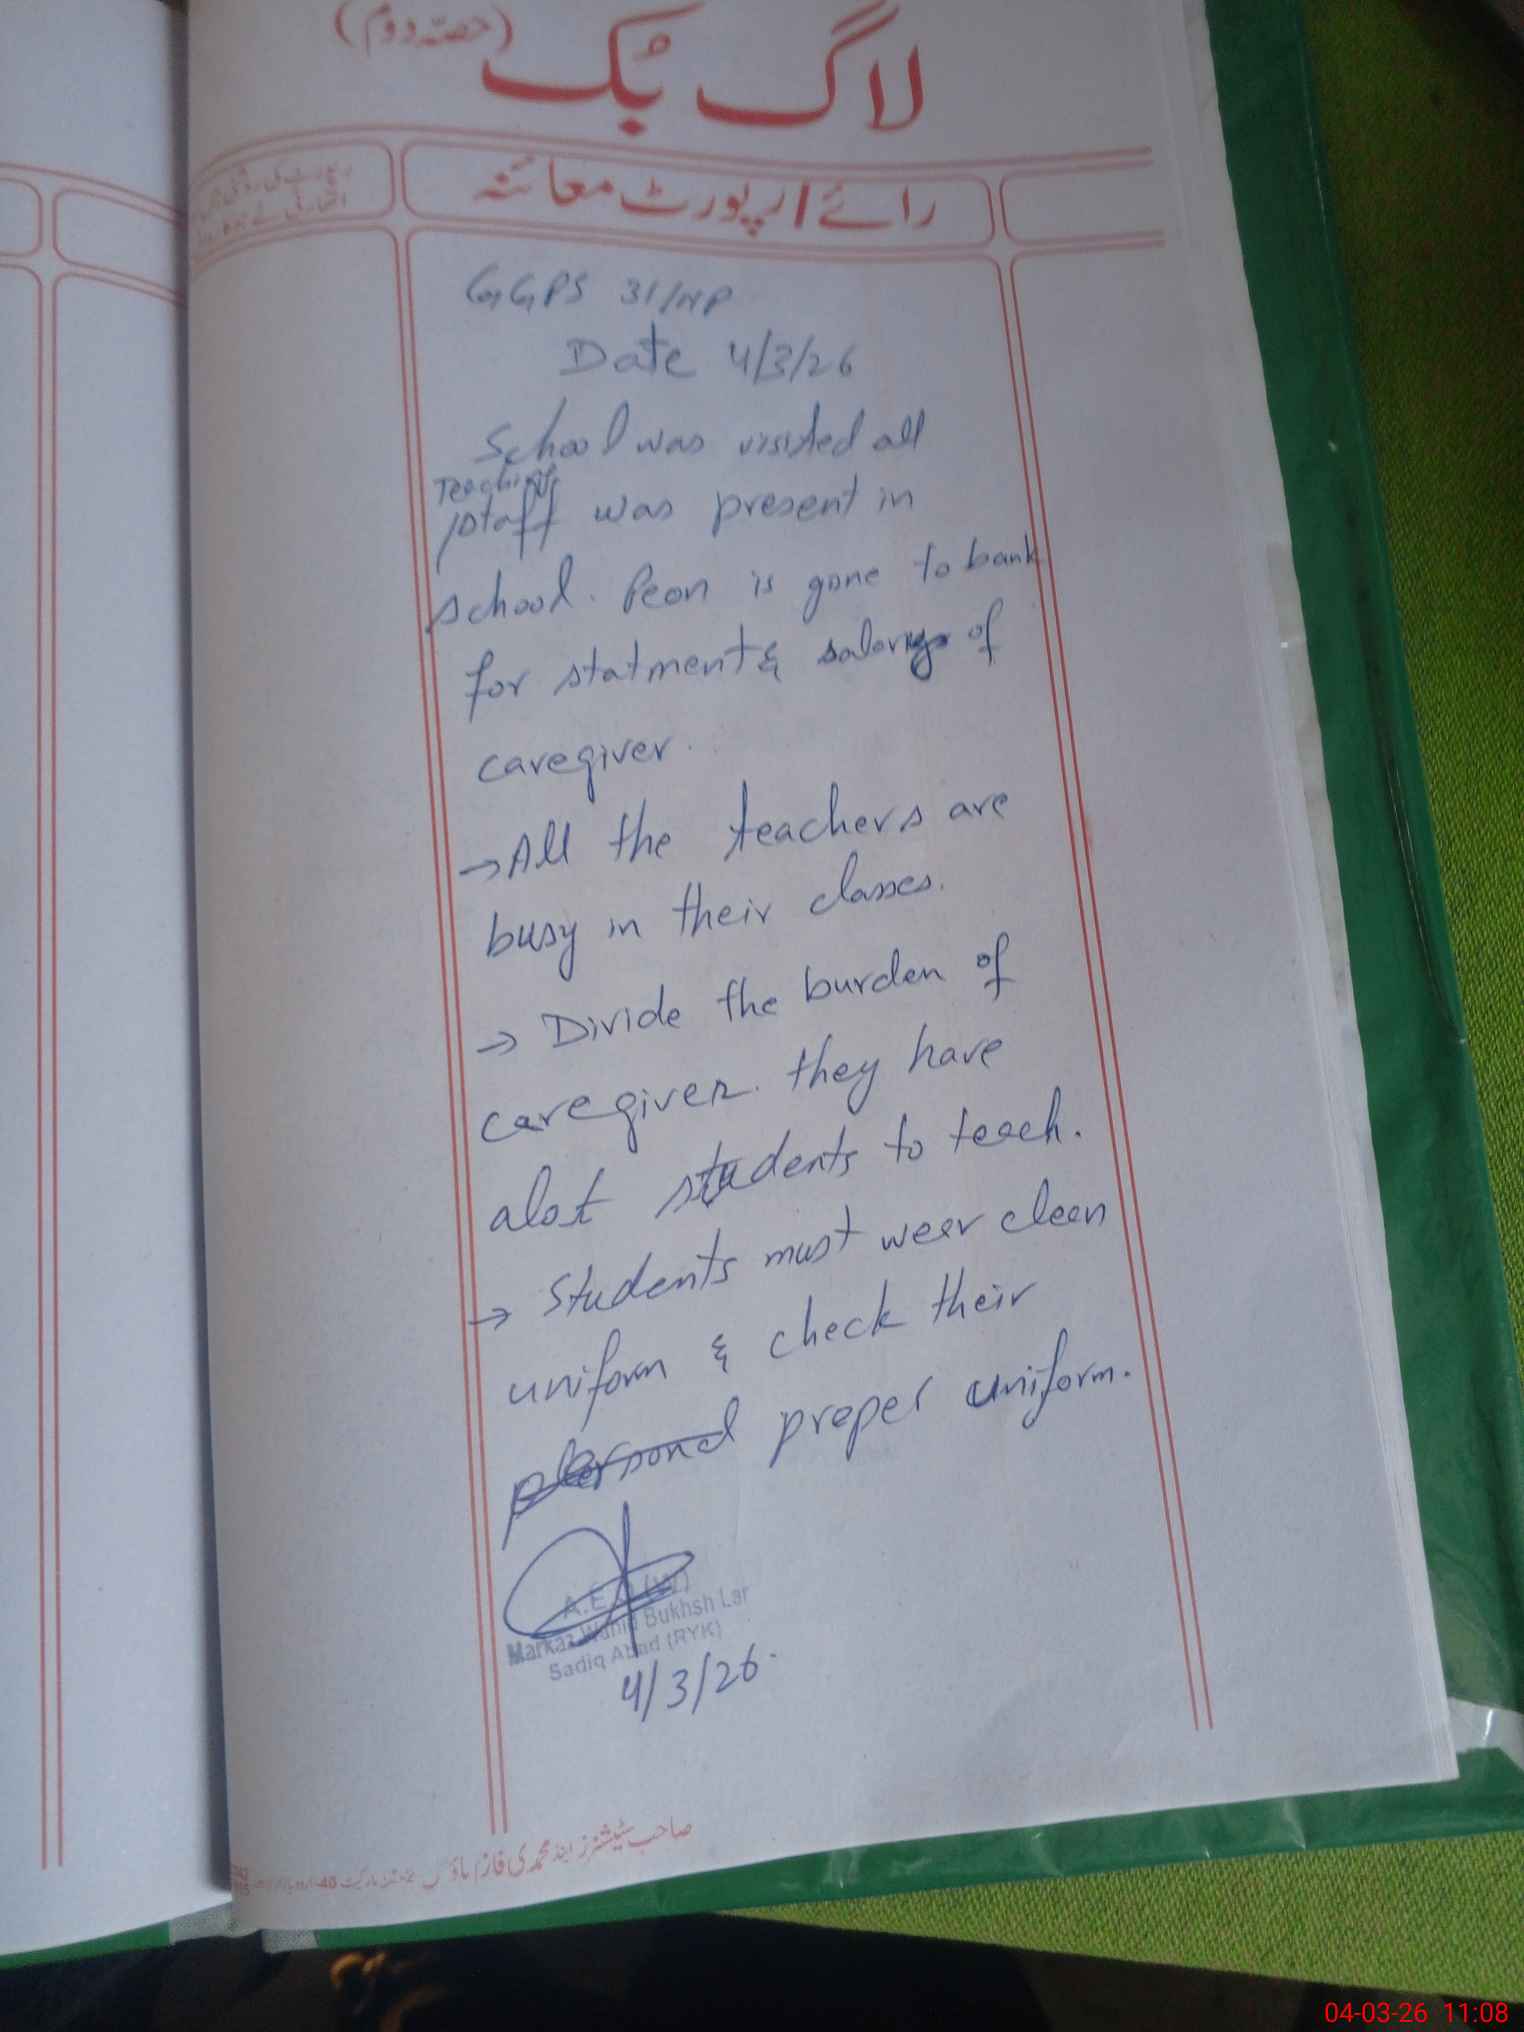 لاگ بک (حصّہ دوم)
رائے / رپورٹ معائنہ
GGPS 31/NP
Date 4/3/26
School was visited all
Teaching
staff was present in
school. Peon is gone to bank
for statment & salary of
caregiver.
→ All the teachers are
busy in their classes.
→ Divide the burden of
caregiver. they have
alot students to teach.
→ Students must wear clean
uniform & check their
personal proper uniform.
A.E.O (W)
Markaz Wahid Bukhsh Lar
Sadiq Abad (RYK)
4/3/26.
صاحب سٹیشنرز اینڈ محمدی فارم ہاؤس
04-03-26 11:08